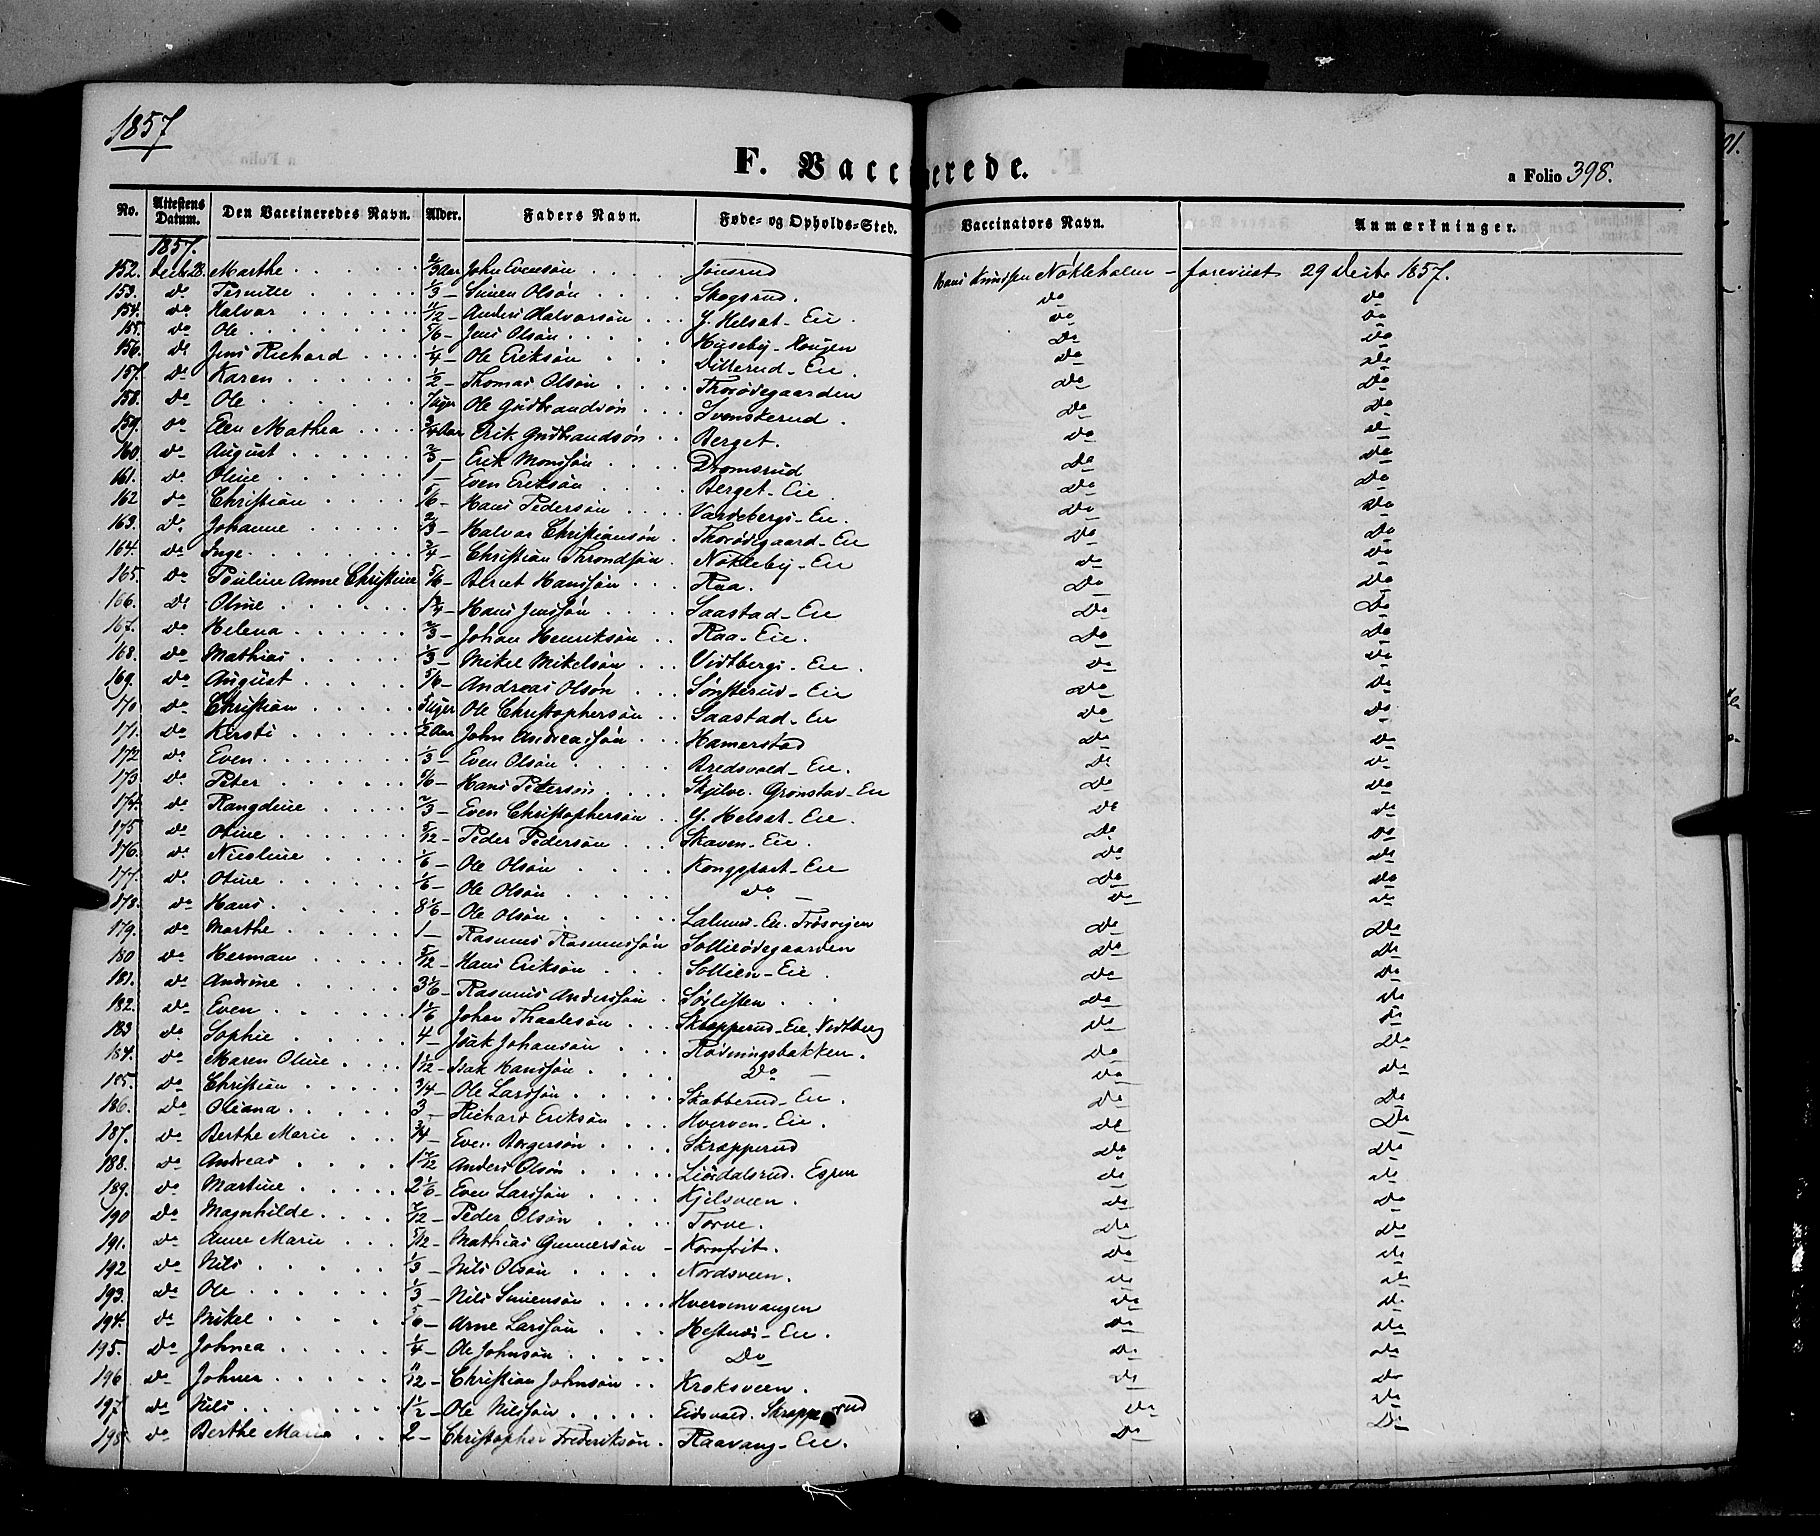 1857
F. Vaccinerede.
a Folio 398.
No. Attestens Datum. Den Vaccineredes Navn. Alder. Faders Navn. Føde- og Opholds-Sted. Vaccinators Navn. Anmærkninger.
1857.
152. Decbr 28. Marthe 2/3 Aar John Evensøn Jønsrud Hans Knudsen Nökleholm - foreviist 29 Decbr 1857.
153. do Pernille 1/3 - Simen Olsøn Skogsrud. do do
154. do Halvor 11/12 - Anders Halvorsøn G. Helsat - Eie. do do
155. do Ole 5/6 - Jens Olsøn Huseby - Haugen do do
156. do Jens Richard 1/4 - Ole Eriksøn Dillerud - Eie. do do
157. do Karen 1/2 - Thomas Olsøn Thorødegaarden do do
158. do Ole 7 Uger Ole Gudbrandsøn Svenskerud. do do
159. do Elen Mathea 3/4 Aar Erik Gudbrandsøn Berget. do do
160. do August 2/3 - Erik Monssøn Dromsrud do do
161. do Oline 1 - Even Eriksøn Berget - Eie. do do
162 do Christian 5/6 - Hans Pedersøn Vardebergs - Eie. do do
163. do Johanne 2/3 - Halvor Christiansøn Thorødegaard - Eie do do
164. do Inge 3/4 - Christian Throndsøn Nökleby - Eie do do
165. do Pauline Anne Christine 5/6 - Beret Hanssøn Raa. do do
166. do Oline 1 3/4 - Hans Jenssøn Saastad - Eie do do
167. do Helena 2/3 - Johan Henriksøn Raa - Eie. do do
168. do Mathias 1/3 - Mikel Mikelsøn Vidtbergs - Eie. do do
169. do August 5/6 - Andreas Olsøn Sønsterud - Eie do do
170. do Christian 5 Uger Ole Christophersøn Saastad - Eie do do
171. do Kirsti 1/2 Aar John Andreassøn Hamerstad do do
172 do Even 1/3 - Even Olsøn Bredsvold - Eie. do do
173. do Peter 5/6 - Hans Pedersøn Skjelve. Grønstad - Eie do do
174. do Rangdine 2/3 - Even Christophersøn G. Helsat - Eie. do do
175 do Otine 5/12 - Peder Pedersøn Skaven - Eie. do do
176. do Nicoline 1/6 - Ole Olsøn Kongsport - Eie do do
177. do Otine 1/6 - Ole Olsøn do - do do
178. do Hans 8 1/6 - Ole Olsøn Lalums - Ei. Frösvigen do do
179. do Marthe 1 - Rasmus Rasmussøn Sollieødegaarden do do
180 do Herman 5/12 - Hans Eriksøn Sollien - Eie. do do
181. do Andrine 3 1/6 - Rasmus Anderssøn Sørlisten do do
182. do Even 1 1/6 Johan Thaalesøn Skrepperud - Eie. Vidtberg do do
183 do Sophie 4 - Isak Johansøn Rødningsbakken. do do
184. do Maren Oline 1 1/12 - Isak Hanssøn do - do do
185. do Christian 3/4 - Ole Larssøn Skabberud - Eie. do do
186. do Oliana 3 - Richard Eriksøn Hverven - Eie. do do
187. do Berthe Marie 3/4 - Even Borgersøn Skræpperud do do
188. do Andreas 1 7/12 Anders Olsøn Liördalsrud. Egpen do do
189. do Martine 2 1/6 - Even Larssøn Kjelsveen. do do
190 do Magnhilde 7/12 - Peder Olsøn Torve. do do
191. do Anne Marie 5/12 - Mathias Gunnersøn - Kornfrit. do do
192 do Nils 1/3 - Nils Olsøn Nordsveen. do do
193. do Ole 1/3 - Nils Simensøn Hvervenvangen do do
194. do Mikel 5/6 - Arne Larssøn Hestnæs - Eie. do do
195. do Johnea 1/4 - Ole Johnsøn do do do
196 do Johner 11/12 - Christian Johnsøn Kroksveen. do do
197 do Nils 1 1/2 - Ole Nilssøn Eidsvold. Skrepperud do do
198 do Berthe Maria 2 - Christopher Frederiksøn Raavang - Eie. do do